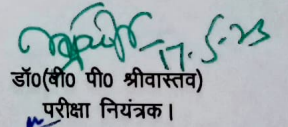 17-5-23
डॉ0(वी0 पी0 श्रीवास्तव)
परीक्षा नियंत्रक।